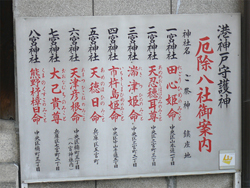 港神戸守護神
厄除八社御案内
神社名 ご祭神 鎮座地
一宮神社 田心姫命 中央区山本通一丁目
二宮神社 天忍穂耳尊 中央区二宮町三丁目
三宮神社 湍津姫命 中央区三宮町二丁目
四宮神社 市杵島姫命 中央区中山手通五丁目
五宮神社 天穂日命 兵庫区五宮町
六宮神社 天津彦根命 中央区楠町三丁目
七宮神社 大己貴命 兵庫区七宮町二丁目
八宮神社 熊野杼樟日命 中央区楠町三丁目